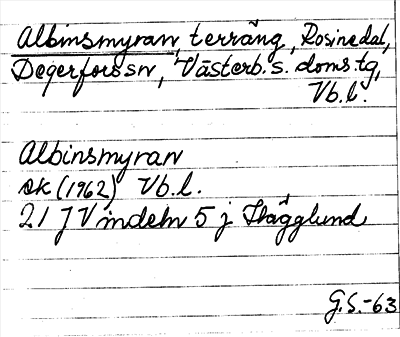 Albinsmyran, terräng, Rosinedal,
Degerfors sn, Västerb. s. doms tg,
Vb.l.
Albinsmyran
ek (1962) Vb.l.
21 J Vindeln 5 j Hägglund
G.S.-63